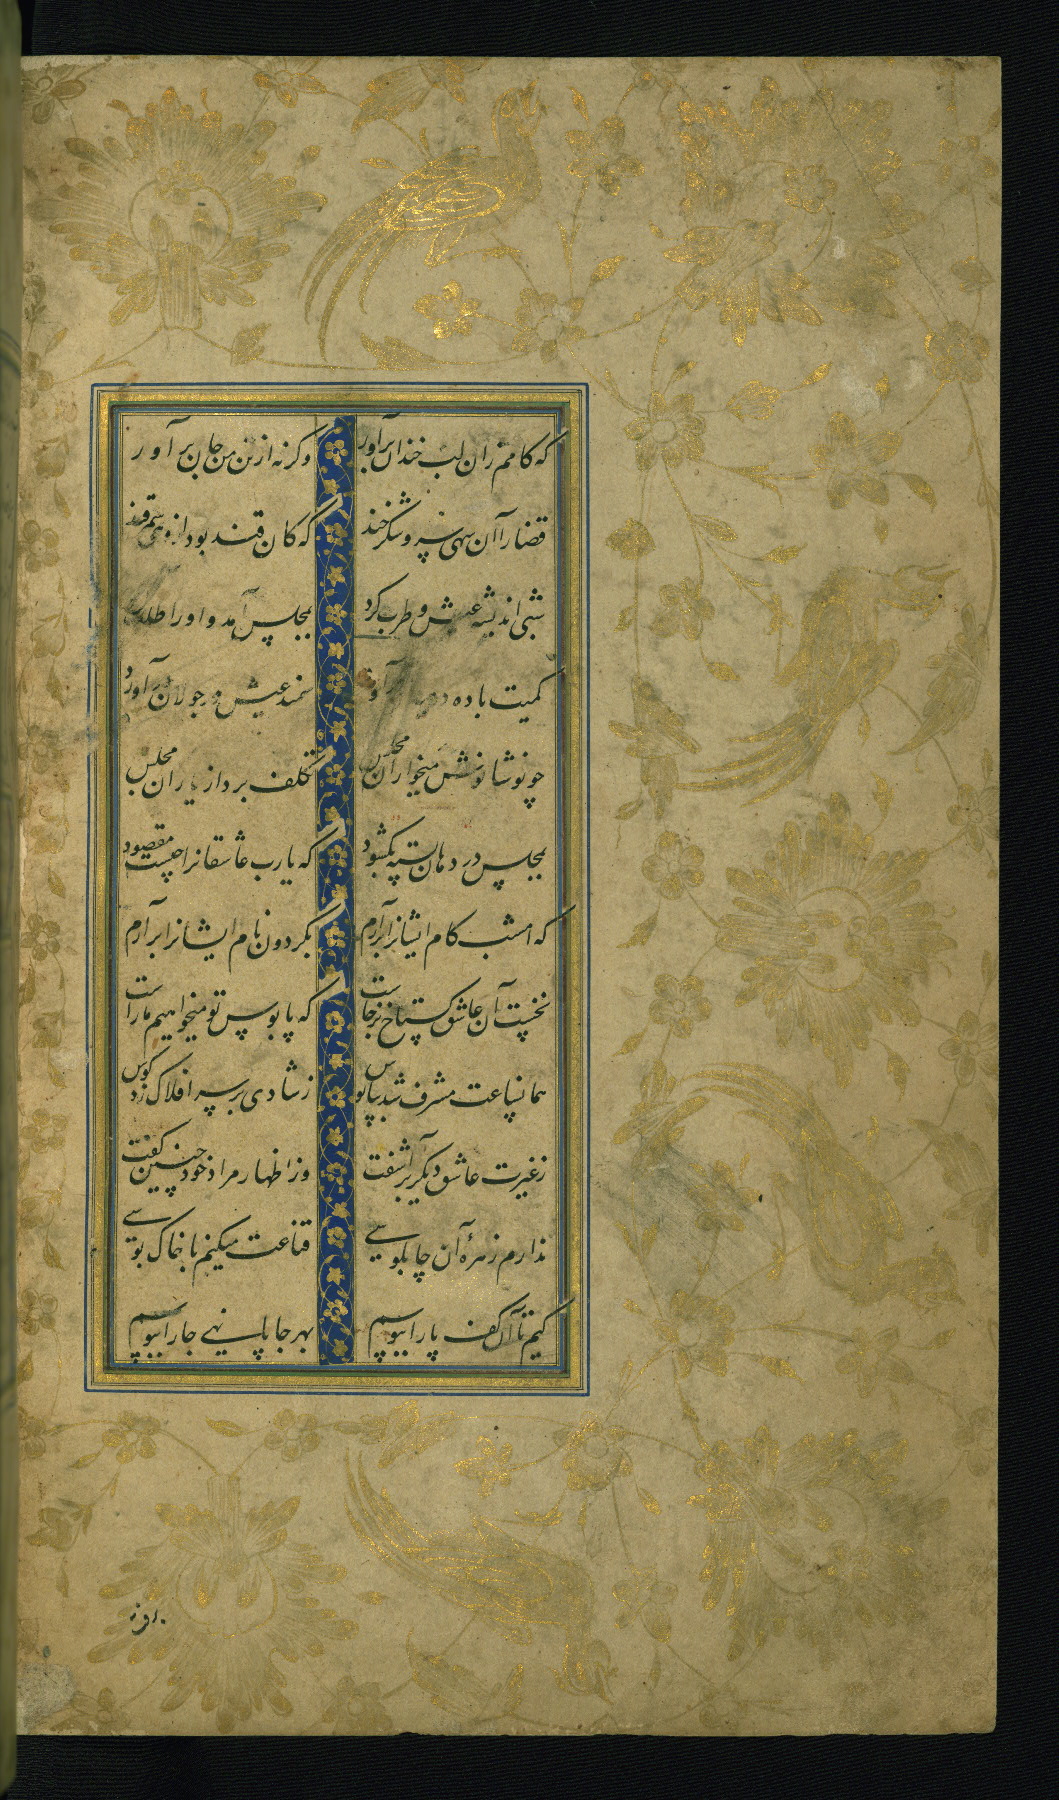 که کامم زان لب خندان برآور وگرنه از تن من جان برآور
قضا را آن سهی سرو شکرخند که کان قند بود از وی سمرقند
شبی اندیشه عیش و طرب کرد بمجلس آمد و او را طلب کرد
کمیت باده در سمند عیش در جولان درآورد
چو نوشانوش میخواران مجلس تکلف برد از یاران مجلس
بمجلس در دهان پسته بگشود که یارب عاشقانرا چیست مقصود
که امشب کام ایشانرا برآرم بگردون نام ایشانرا برآرم
نخست آن عاشق گستاخ برخاست که پابوس تو میخواهیم ما راست
همانساعت مشرف شد بپابوس ز شادی بر سر افلاک زد کوس
ز غیرت عاشق دیگر برآشفت وز اظهار مراد خود چنین گفت
ندارم زهرهٔ آن چاپلوسی قناعت میکنم با خاک بوسی
کیم تا آن کف پا را ببوسم بهر جا پا نهی جا را ببوسم